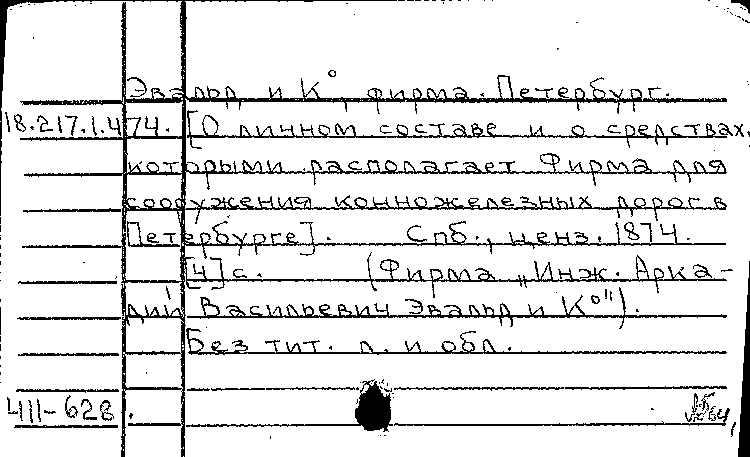 Эвальд и К°, фирма. Петербург.
18.217.1.474. [О личном составе и о средствах,
которыми располагает Фирма для
сооружения конножелезных дорог в
Петербурге]. Спб., ценз. 1874.
[4] с. (Фирма „Инж. Арка-
дий Васильевич Эвальд и К°").
Без тит. л. и обл.
411-628.